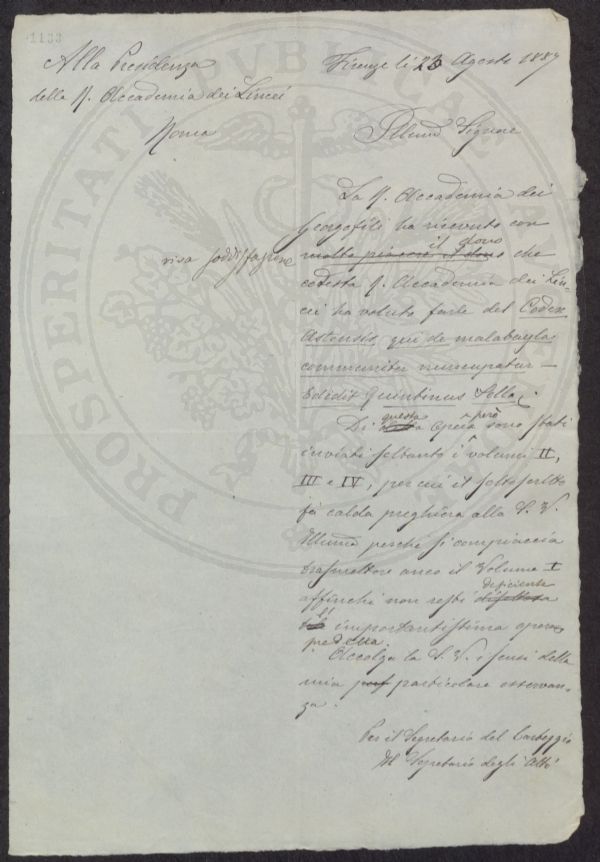 1133
Alla Presidenza
della R. Accademia dei Lincei
Roma
Firenze li 23 Agosto 1887
Illmo Signore
La R. Accademia dei
Georgofili ha ricevuto con
viva soddisfazione
molto piacere il dono che
il dono
cotesta R. Accademia dei Lin-
cei ha voluto farle del Codex
Astensis, qui de malabayla
communiter nuncupatur –
Edidit Quintinus Sella.
Di questa opera però sono stati
inviati soltanto i volumi II,
III e IV, per cui il sottoscritto
fa calda preghiera alla S. V.
Illma perché si compiaccia
trasmettere anco il Volume I
affinché non resti deficiente
l' importantissima opera
predetta.
Accolga la S. V. i sensi della
mia particolare osservan-
za.
Per il Segretario del Carteggio
Il Segretario degli Atti
PROSPERITATI PUBLICAE